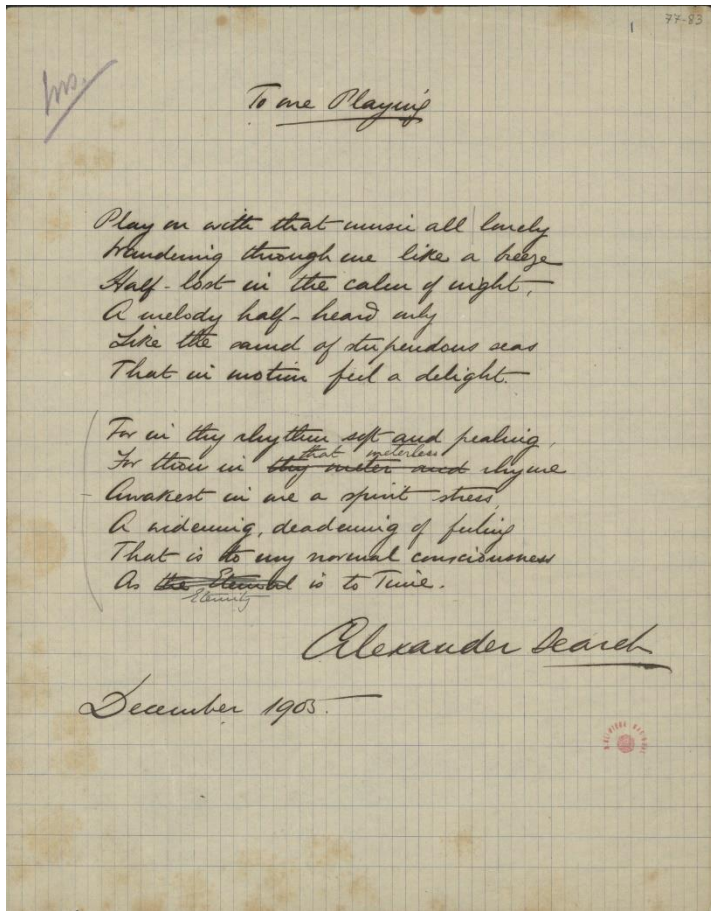 1
77-83
ins.
To one Playing
Play on with that music all lonely
Wandering through me like a breeze
Half-lost in the calm of night,
A melody half-heard only
Like the sound of stupendous seas
That in motion feel a delight.
For in thy rhythm soft and pealing,
that meterless
For thou in thy meter and rhyme
Awakest in me a spirit stress,
A widening, deadening of feeling
That is to my normal consciousness
As the Eternal is to Time.
Eternity
Alexander Search
December 1905.